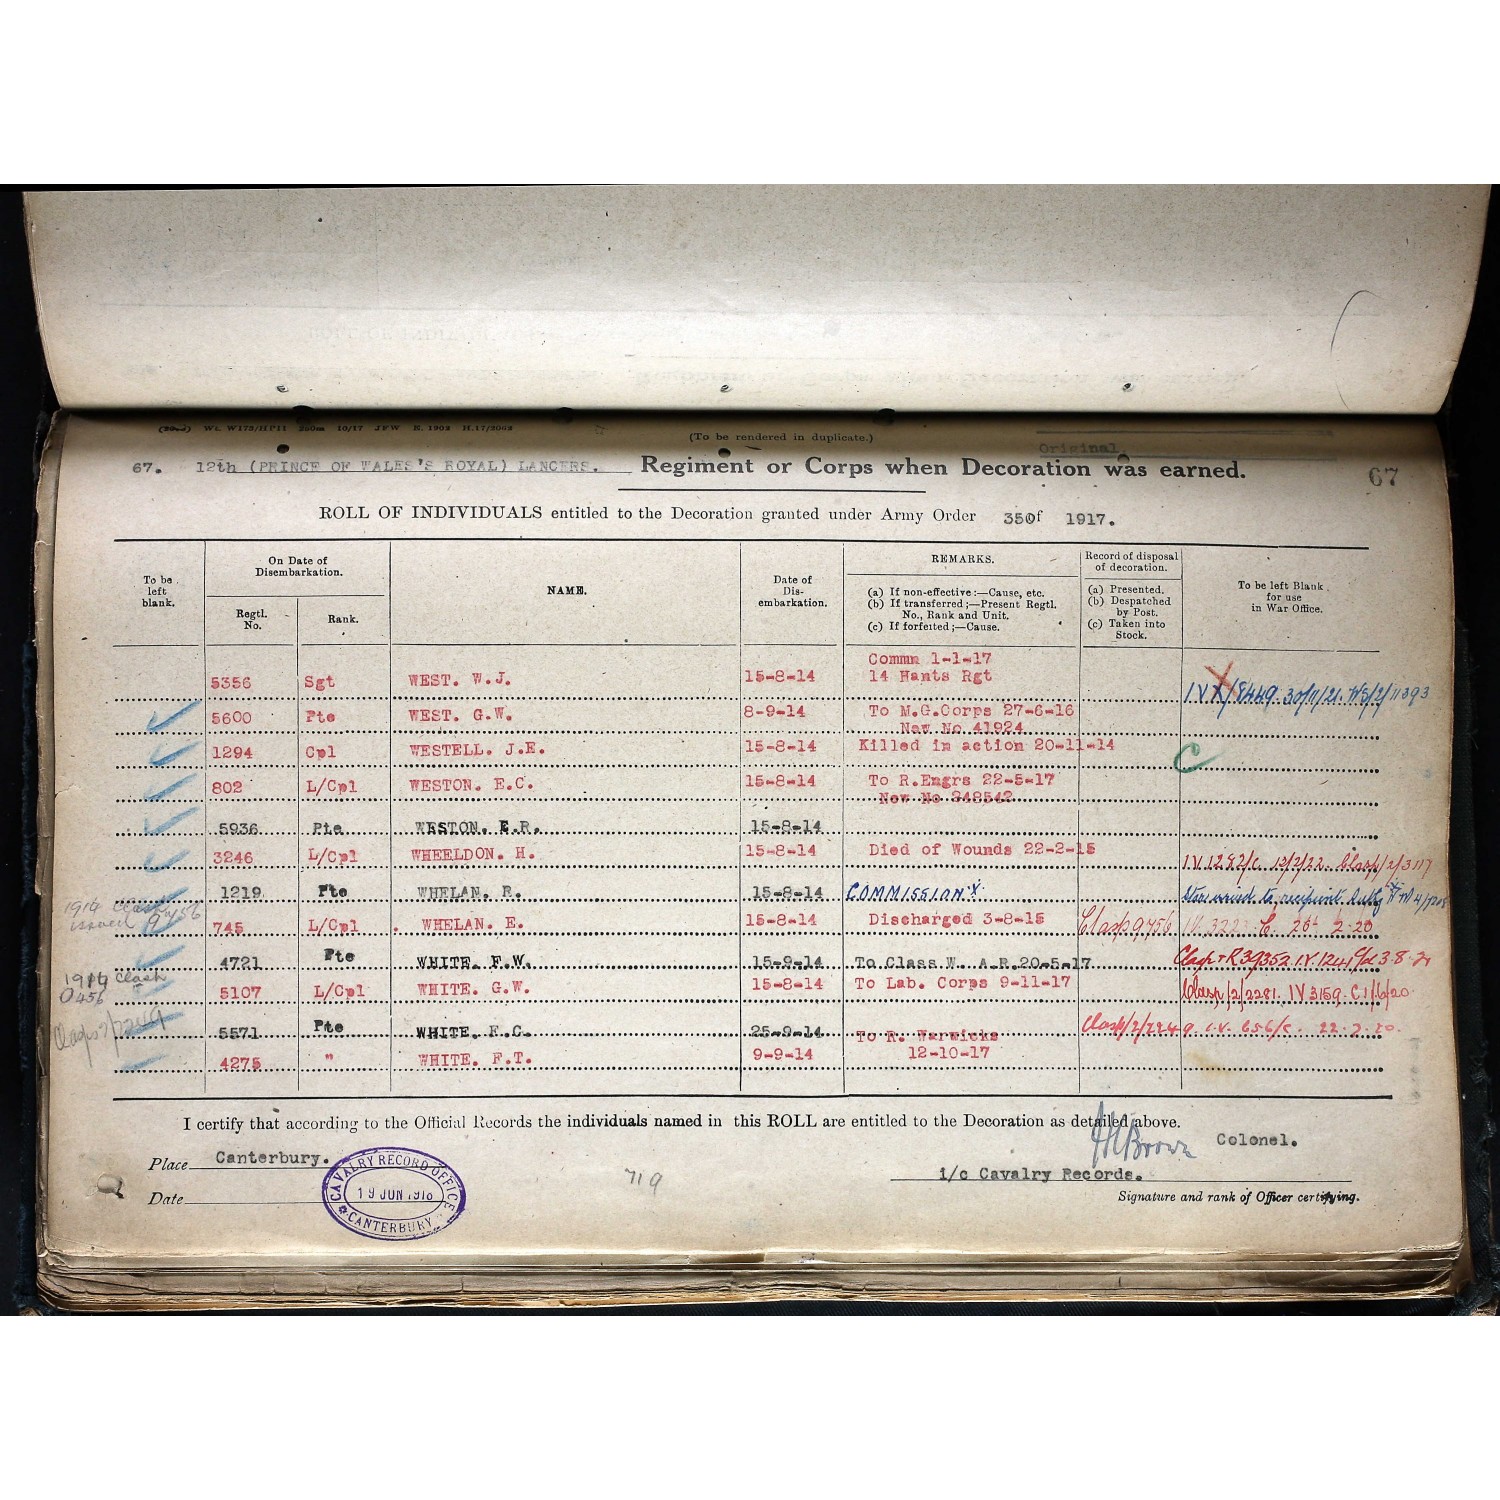 Wt. W173/HP11 250m 10/17 JFW E. 1902 H.17/2062
(To be rendered in duplicate.)
Original.
67. 12th (PRINCE OF WALES'S ROYAL) LANCERS. Regiment or Corps when Decoration was earned. 67
ROLL OF INDIVIDUALS entitled to the Decoration granted under Army Order 350 of 1917.
To be left blank.
On Date of Disembarkation.
Regtl. No.
Rank.
NAME.
Date of Dis-embarkation.
REMARKS.
(a) If non-effective:—Cause, etc.
(b) If transferred;—Present Regtl. No., Rank and Unit.
(c) If forfeited;—Cause.
Record of disposal of decoration.
(a) Presented.
(b) Despatched by Post.
(c) Taken into Stock.
To be left Blank for use in War Office.
5356 Sgt WEST. W.J. 15-8-14 Commn 1-1-17
14 Hants Rgt IV X/8449. 30/11/21. W5/2/11393
5600 Pte WEST. G.W. 8-9-14 To M.G.Corps 27-6-16
New No 41924
1294 Cpl WESTELL. J.E. 15-8-14 Killed in action 20-11-14 C
802 L/Cpl WESTON. E.C. 15-8-14 To R.Engrs 22-5-17
New No 348542
5936 Pte WESTON. E.R. 15-8-14
3246 L/Cpl WHEELDON. H. 15-8-14 Died of Wounds 22-2-15 IV.1292/c. 12/2/22. Clasp/2/3117
1219 Pte WHELAN. R. 15-8-14 COMMISSION X
1914 Clasp issued
745 L/Cpl WHELAN. E. 15-8-14 Discharged 3-8-15 Clasp 9456 IV.3223 C. 26 2.20
4721 Pte WHITE. F.W. 15-9-14 To Class.W. A.R.20-5-17 Clasp + R39352 IV 1241 3.8.21
1914 Clasp
0456
5107 L/Cpl WHITE. G.W. 15-8-14 To Lab. Corps 9-11-17 Clasp/2/2281. IV3159. C 1/6/20
5571 Pte WHITE. F.C. 25-9-14 Clasp/2/2249. I.V. 656/c. 22.2.20.
To R. Warwicks
4275 " WHITE. F.T. 9-9-14 12-10-17
I certify that according to the Official Records the individuals named in this ROLL are entitled to the Decoration as detailed above.
Brown Colonel.
Place Canterbury.
i/c Cavalry Records.
Date
CAVALRY RECORD OFFICE
19 JUN 1918
CANTERBURY
719
Signature and rank of Officer certifying.